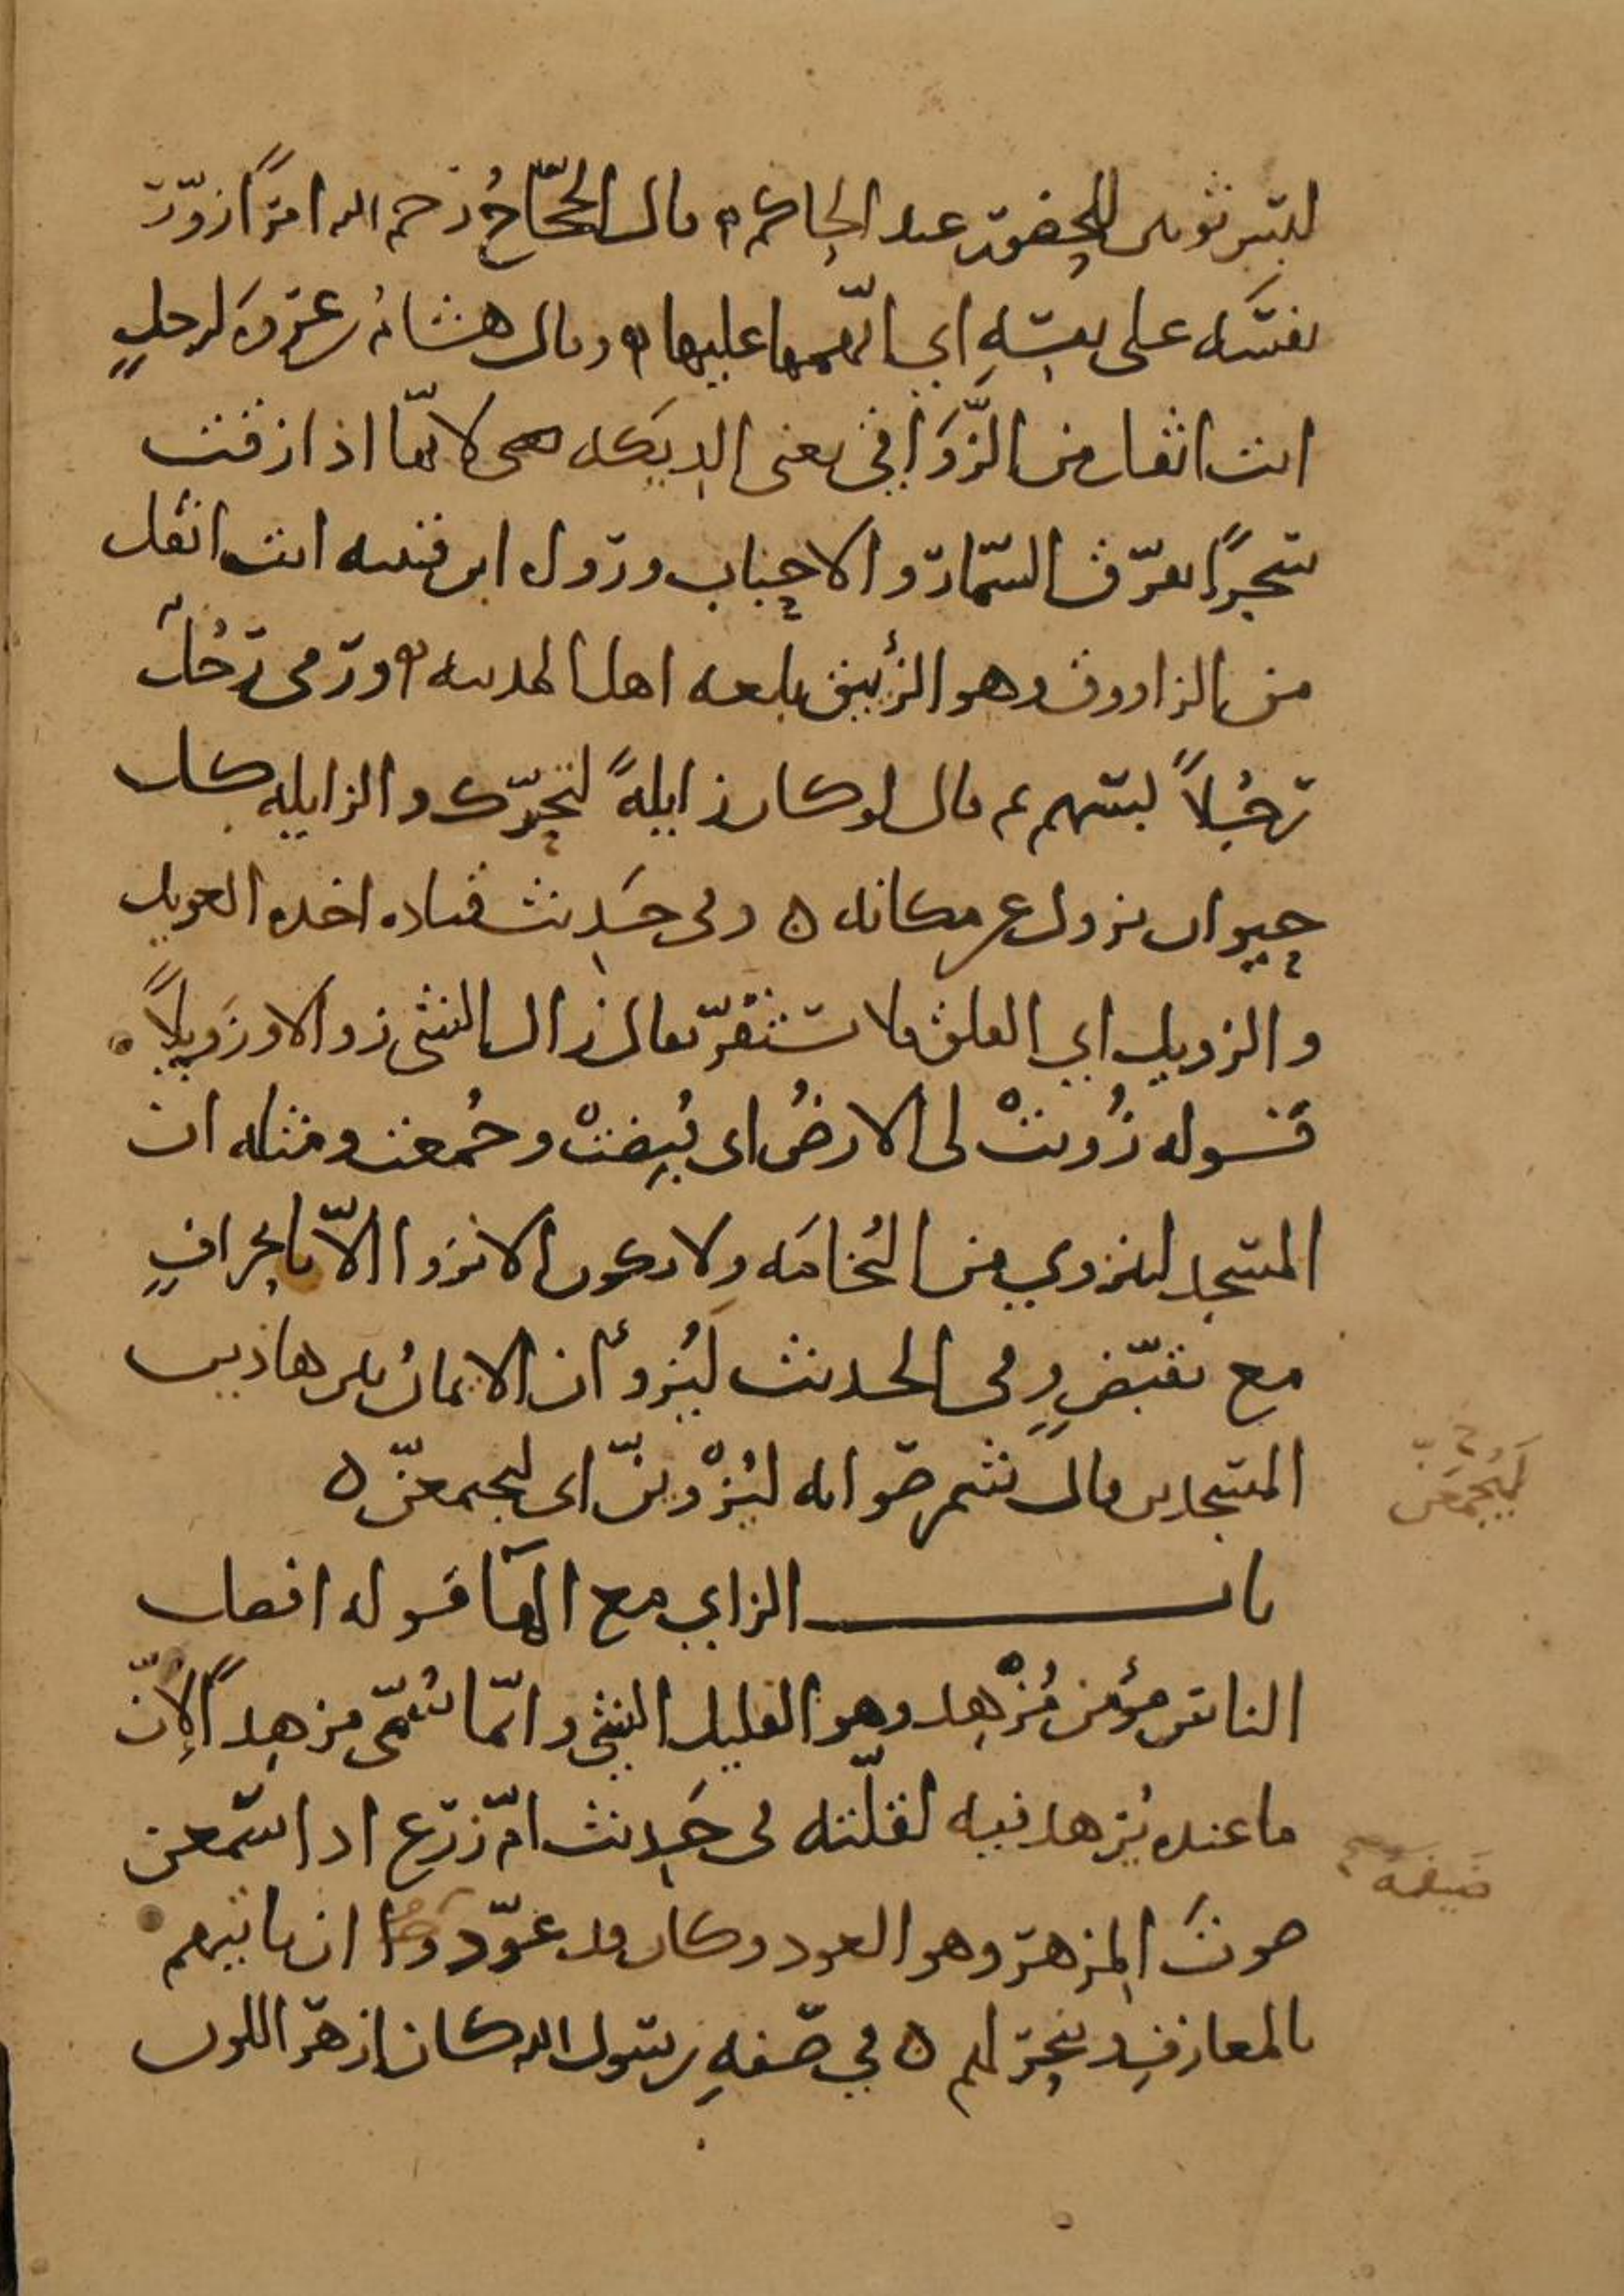 لبس ثوبين للحضور عند الحاكم ه قال الحجّاجُ رحم الله امرًأ زوّر
نفسَه على نفسِه اي اتّهمها عليها ه وقال هشامُ بن عروَه لرجلٍ
انت اثقل من الزَّوَاقي يعني الديَكه لانّها اذا زقت
سحرًا تفرّق السمّار والاحباب وروى ابن قتيبه انت اثقل
من الزاووق وهو الزئبق بلغه اهل المدينه ه ورمى رجُل
رجُلاً بسهم فقال لو كان زايلهً لتحرّك والزايله كل
حيوان يزول عن مكانه ه وفي حَديث قتاده اخذه العويل
والزويل اي القلق فلا يستقرّ يقال زال الشي زوالا وزَويلاً
قوله زُويتْ لي الارضُ اي قُبِضتْ وجُمعت ومثله ان
المسجد لينزوي من النُخامَه ولا يكون الانزوا الاّ بانحرافٍ
مع تقبّضٍ وفي الحديث لَيُزوأنّ الايمانُ بين هاذين
المسجدين قال شمر صوابه ليُزْوينّ اي ليجمعنّ ه
لَيُجمَعَنّ
باب الزاي مع الهآ قوله افضل
الناس مؤمن مُزْهِد وهو القليل الشي وانّما سُمّي مزهِداً لانّ
ما عنده يُزهد فيه لقلّته في حَديث امّ زرع اذا سمعن
ضيفه
صوتَ المِزهر وهو العود وكان قد عوّد ان ياتيهم
بالمعازف وينحر لهم ه في صفهِ رسول الله كان ازهر اللون